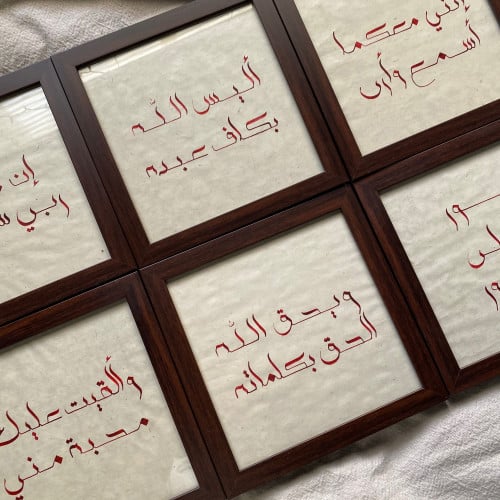 إنني معكما
أسمع وأرى
أليس الله
بكاف عبده
إن
ربي
ويحق الله
الحق بكلماته
وألقيت عليك
محبة مني